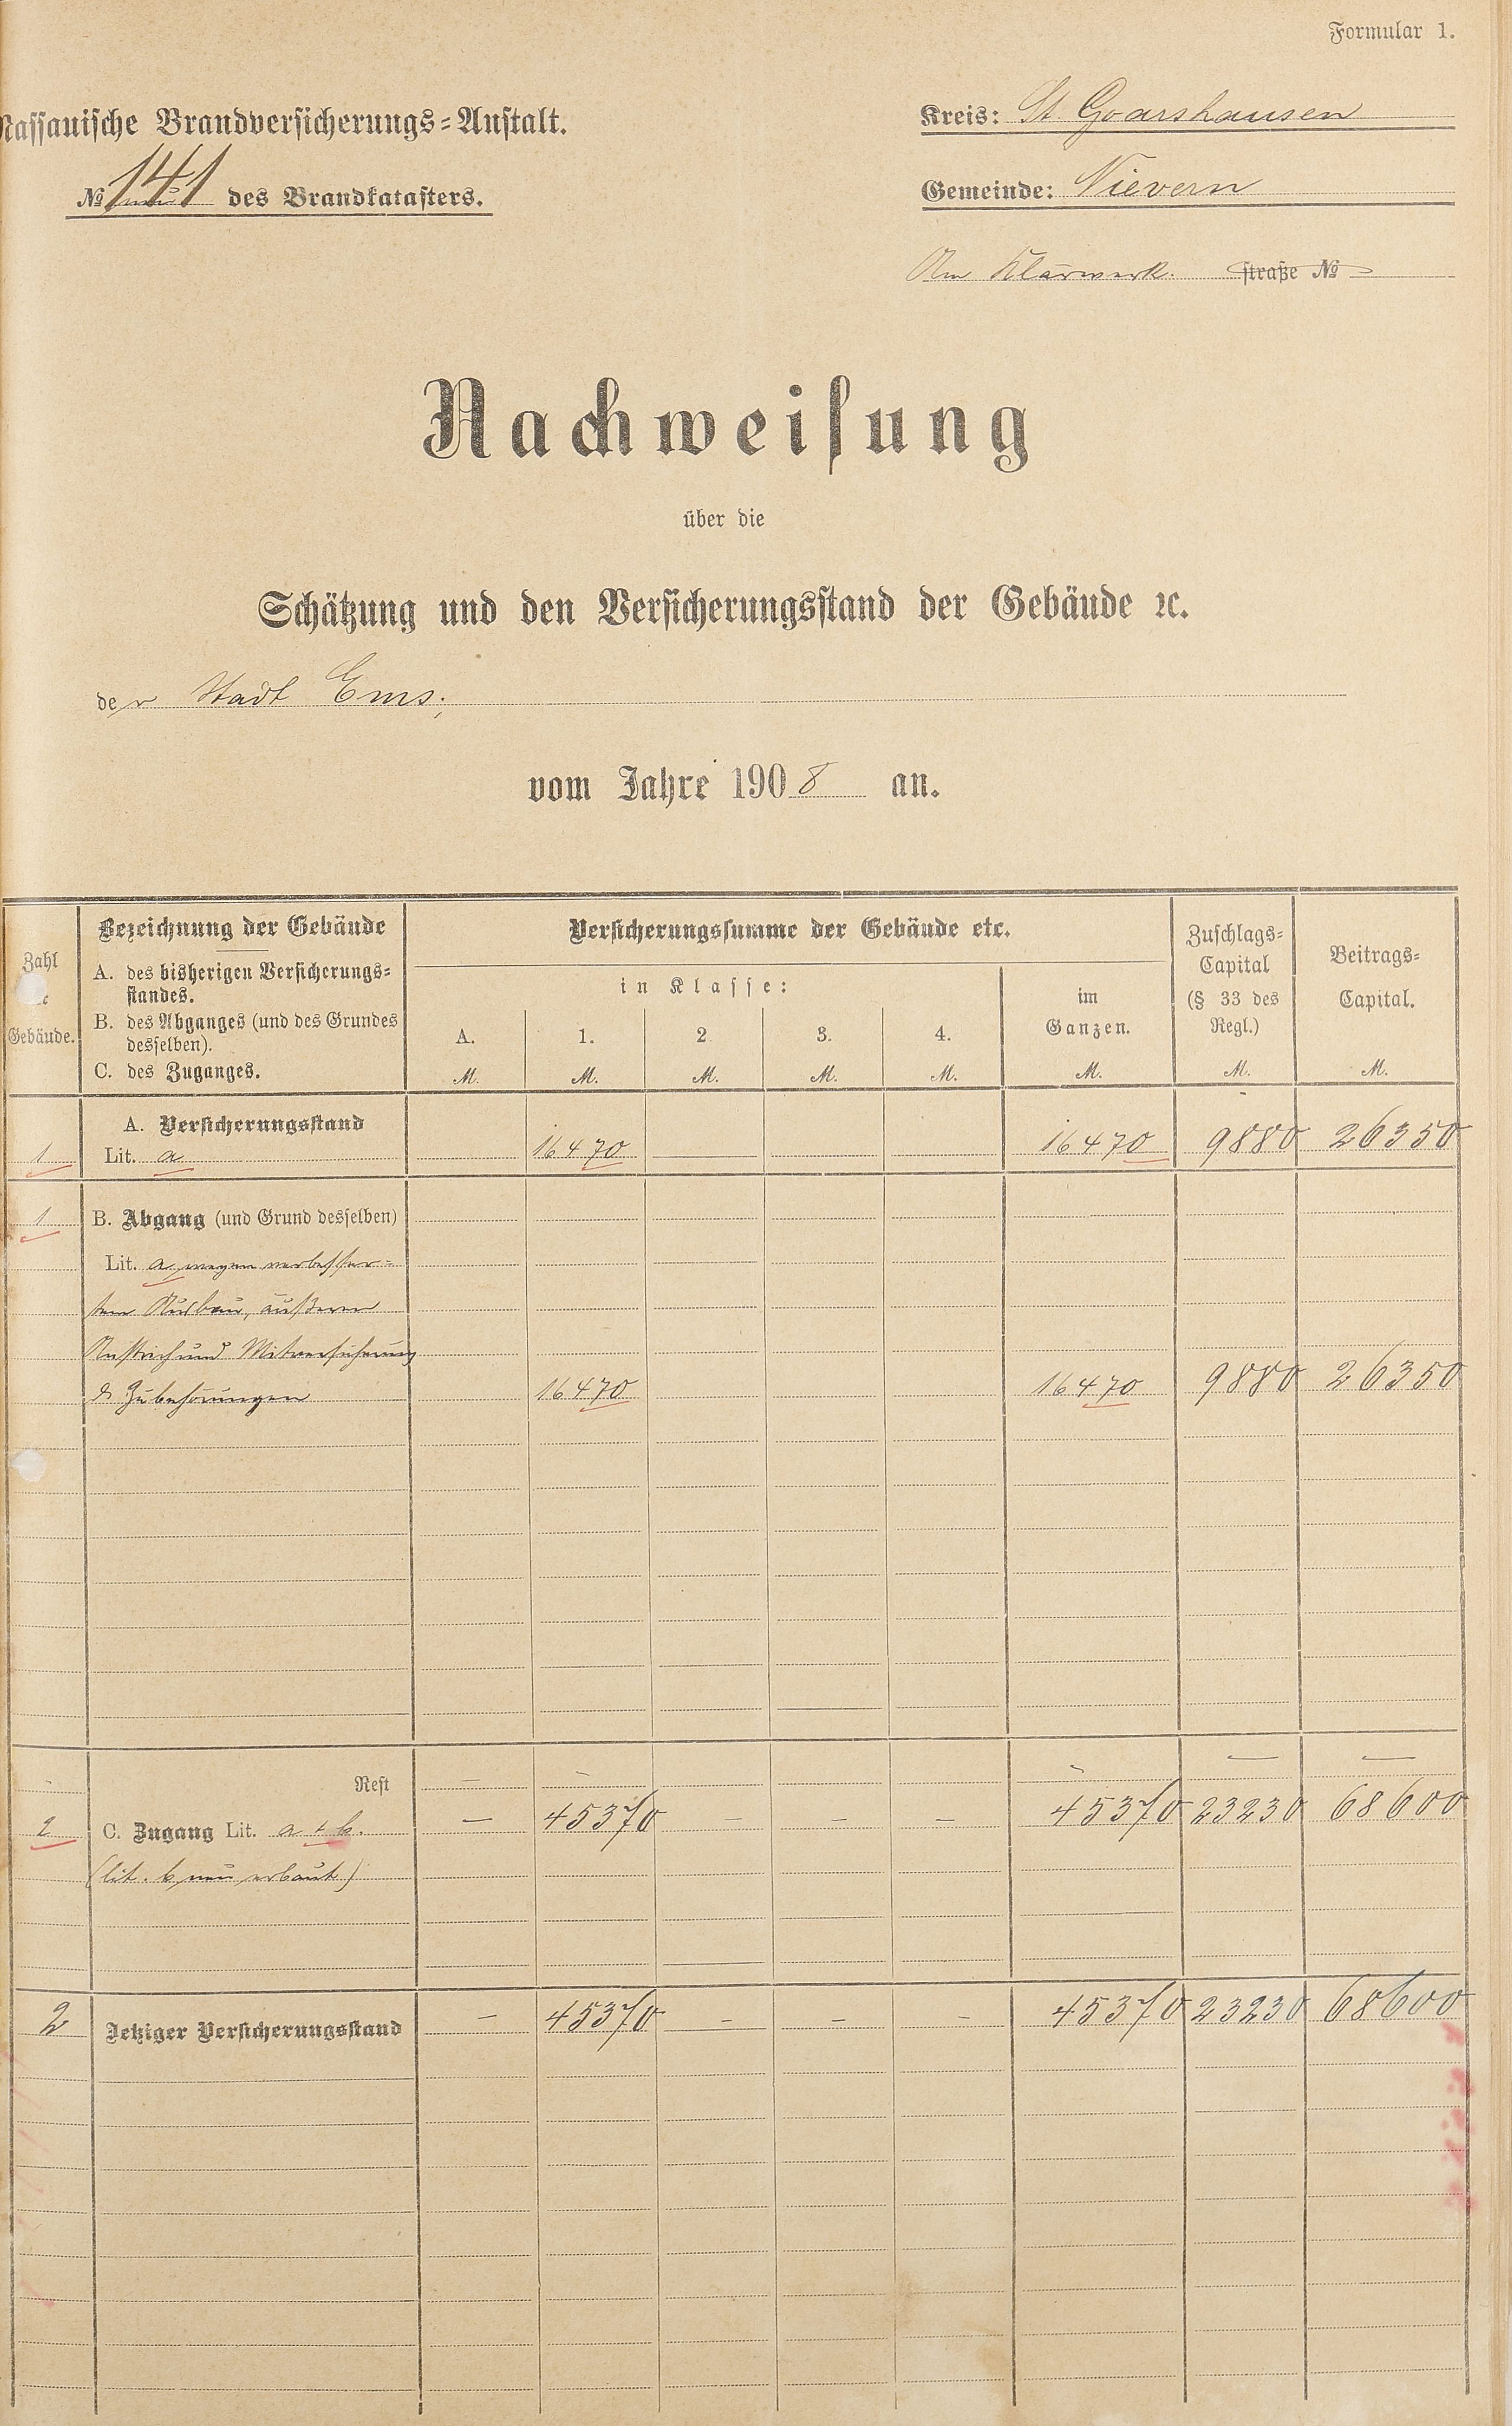 Formular 1.
Nassauische Brandversicherungs-Anstalt.
Kreis: St. Goarshausen
№ 141 des Brandkatasters.
Gemeinde: Nievern
Am Klärwerk. straße №
Nachweisung
über die
Schätzung und den Versicherungsstand der Gebäude ꝛc.
der Stadt Ems.,
vom Jahre 1908 an.
Zahl
Gebäude.
Bezeichnung der Gebäude
A. des bisherigen Versicherungs-
standes.
B. des Abganges (und des Grundes
desselben).
C. des Zuganges.
Versicherungssumme der Gebäude etc.
in Klasse:
A. 1. 2 3. 4.
im
Ganzen.
Zuschlags-
Capital
(§ 33 des
Regl.)
Beitrags-
Capital.
M. M. M. M. M. M. M. M.
A. Versicherungsstand
1 Lit. a 16470 16470 9880 26350
1 B. Abgang (und Grund desselben)
Lit. a, wegen verbesser-
tem Ausbau, äußerem
Anstrich und Mitversicherung
d. Zubehörungen 16470 16470 9880 26350
- Rest — - - — —
2 C. Zugang Lit. a + b. — 45370 — — — 45370 23230 68600
(lit. b, neu erbaut)
2 Jetziger Versicherungsstand — 45370 — — — 45370 23230 68600